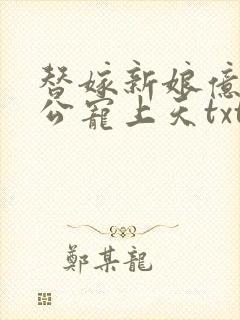 替嫁新娘億
公寵上天txt
鄭某龍